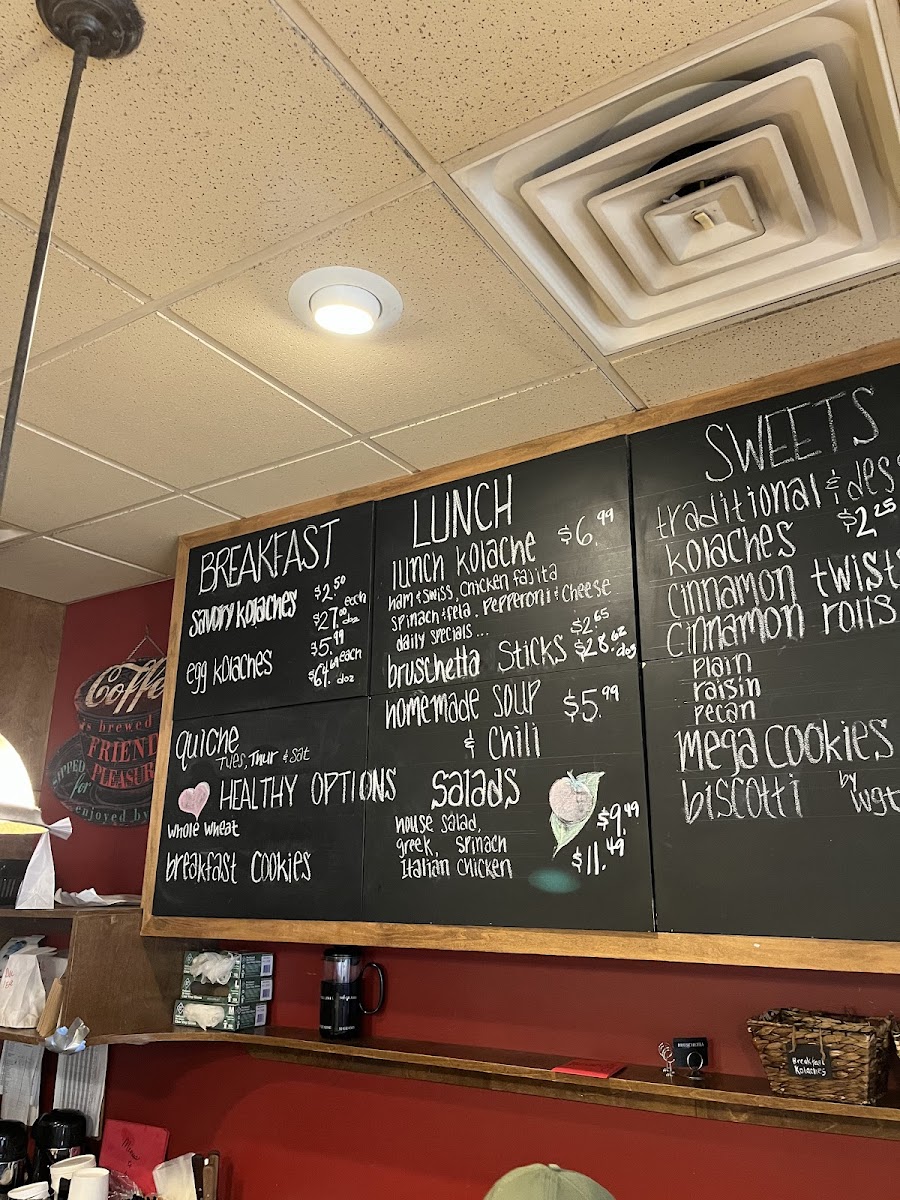 BREAKFAST
savory kolaches $2.50 each
$27.00 doz
egg kolaches 5.99 each
$64.69 doz
quiche
Tues, Thur & Sat
HEALTHY OPTIONS
whole wheat
breakfast cookies
LUNCH
lunch kolache $6.99
ham & swiss, chicken fajita
spinach & feta, pepperoni & cheese
daily specials...
bruschetta sticks $2.65
$28.62 doz
homemade soup $5.99
& chili
salads
house salad, $9.49
greek, spinach
Italian chicken $11.49
SWEETS
traditional & dess
kolaches $2.25
cinnamon twists
cinnamon rolls
plain
raisin
pecan
mega cookies
biscotti by wgt
Coffee
is brewed
FRIEND
SIPPED for PLEASUR
enjoyed by
Breakfast
Kolaches